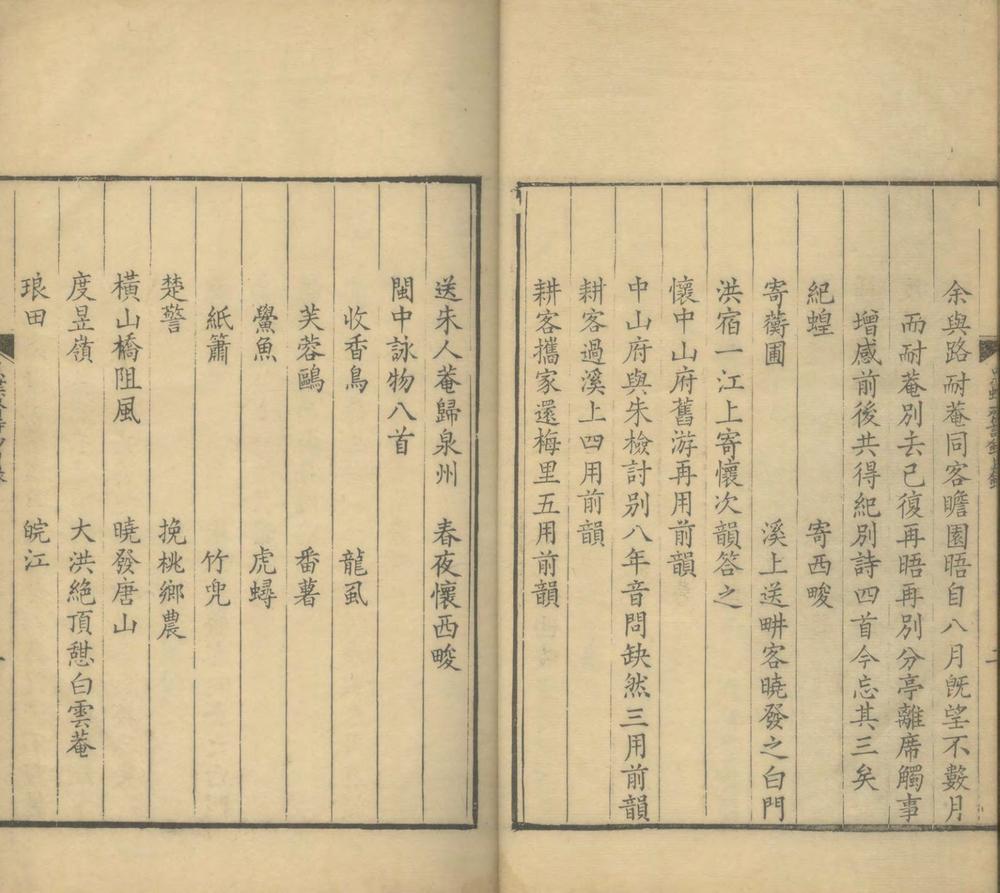 余與路耐菴同客瞻園晤自八月旣望不數月
而耐菴別去已復再晤再別分亭離席觸事
增感前後共得紀別詩四首今忘其三矣
紀蝗 寄西畯
寄蘅圃 溪上送畊客曉發之白門
洪宿一江上寄懷次韻答之
懷中山府舊游再用前韻
中山府與朱檢討別八年音問缺然三用前韻
耕客過溪上四用前韻
耕客攜家還梅里五用前韻
送朱人菴歸泉州 春夜懷西畯
閩中詠物八首
收香鳥 龍虱
芙蓉鷗 番薯
鱟魚 虎蟳
紙簫 竹兜
楚警 挽桃鄉農
橫山橋阻風 曉發唐山
度昱嶺 大洪絶頂憇白雲菴
琅田 皖江